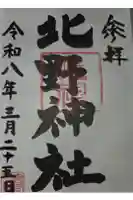 奉拝
北野神社
令和八年三月二十五日